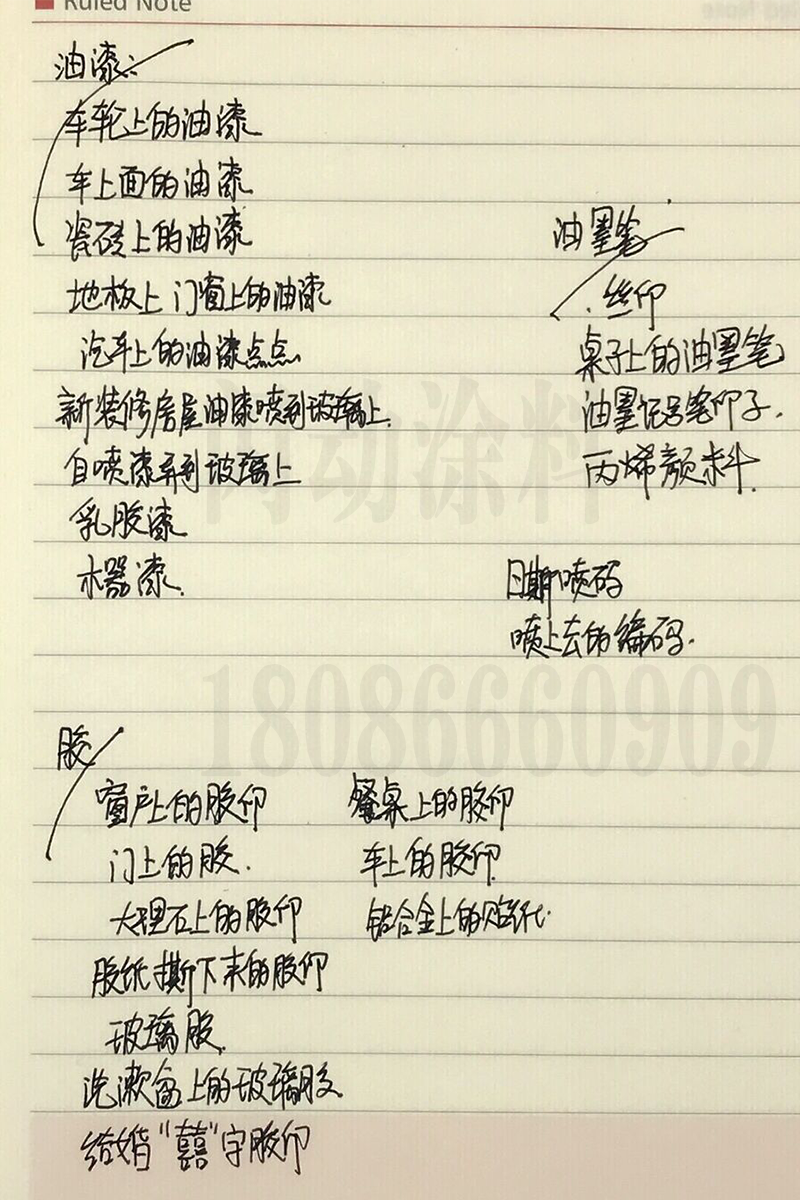 Ruled Note
油漆:
车轮上的油漆
车上面的油漆
瓷砖上的油漆
地板上 门窗上的油漆
汽车上的油漆点点
新装修房屋油漆喷到玻璃上.
自喷漆弄到玻璃上
乳胶漆
木器漆.
油墨笔
丝印
桌子上的油墨笔
油墨记号笔印子.
丙烯颜料.
日期喷码
喷上去的编码.
胶
窗户上的胶印
门上的胶.
大理石上的胶印
胶纸撕下来的胶印
玻璃胶.
洗漱盆上的玻璃胶
结婚“囍”字胶印
餐桌上的胶印
车上的胶印
铝合金上的贴纸.
动涂料
18086660909